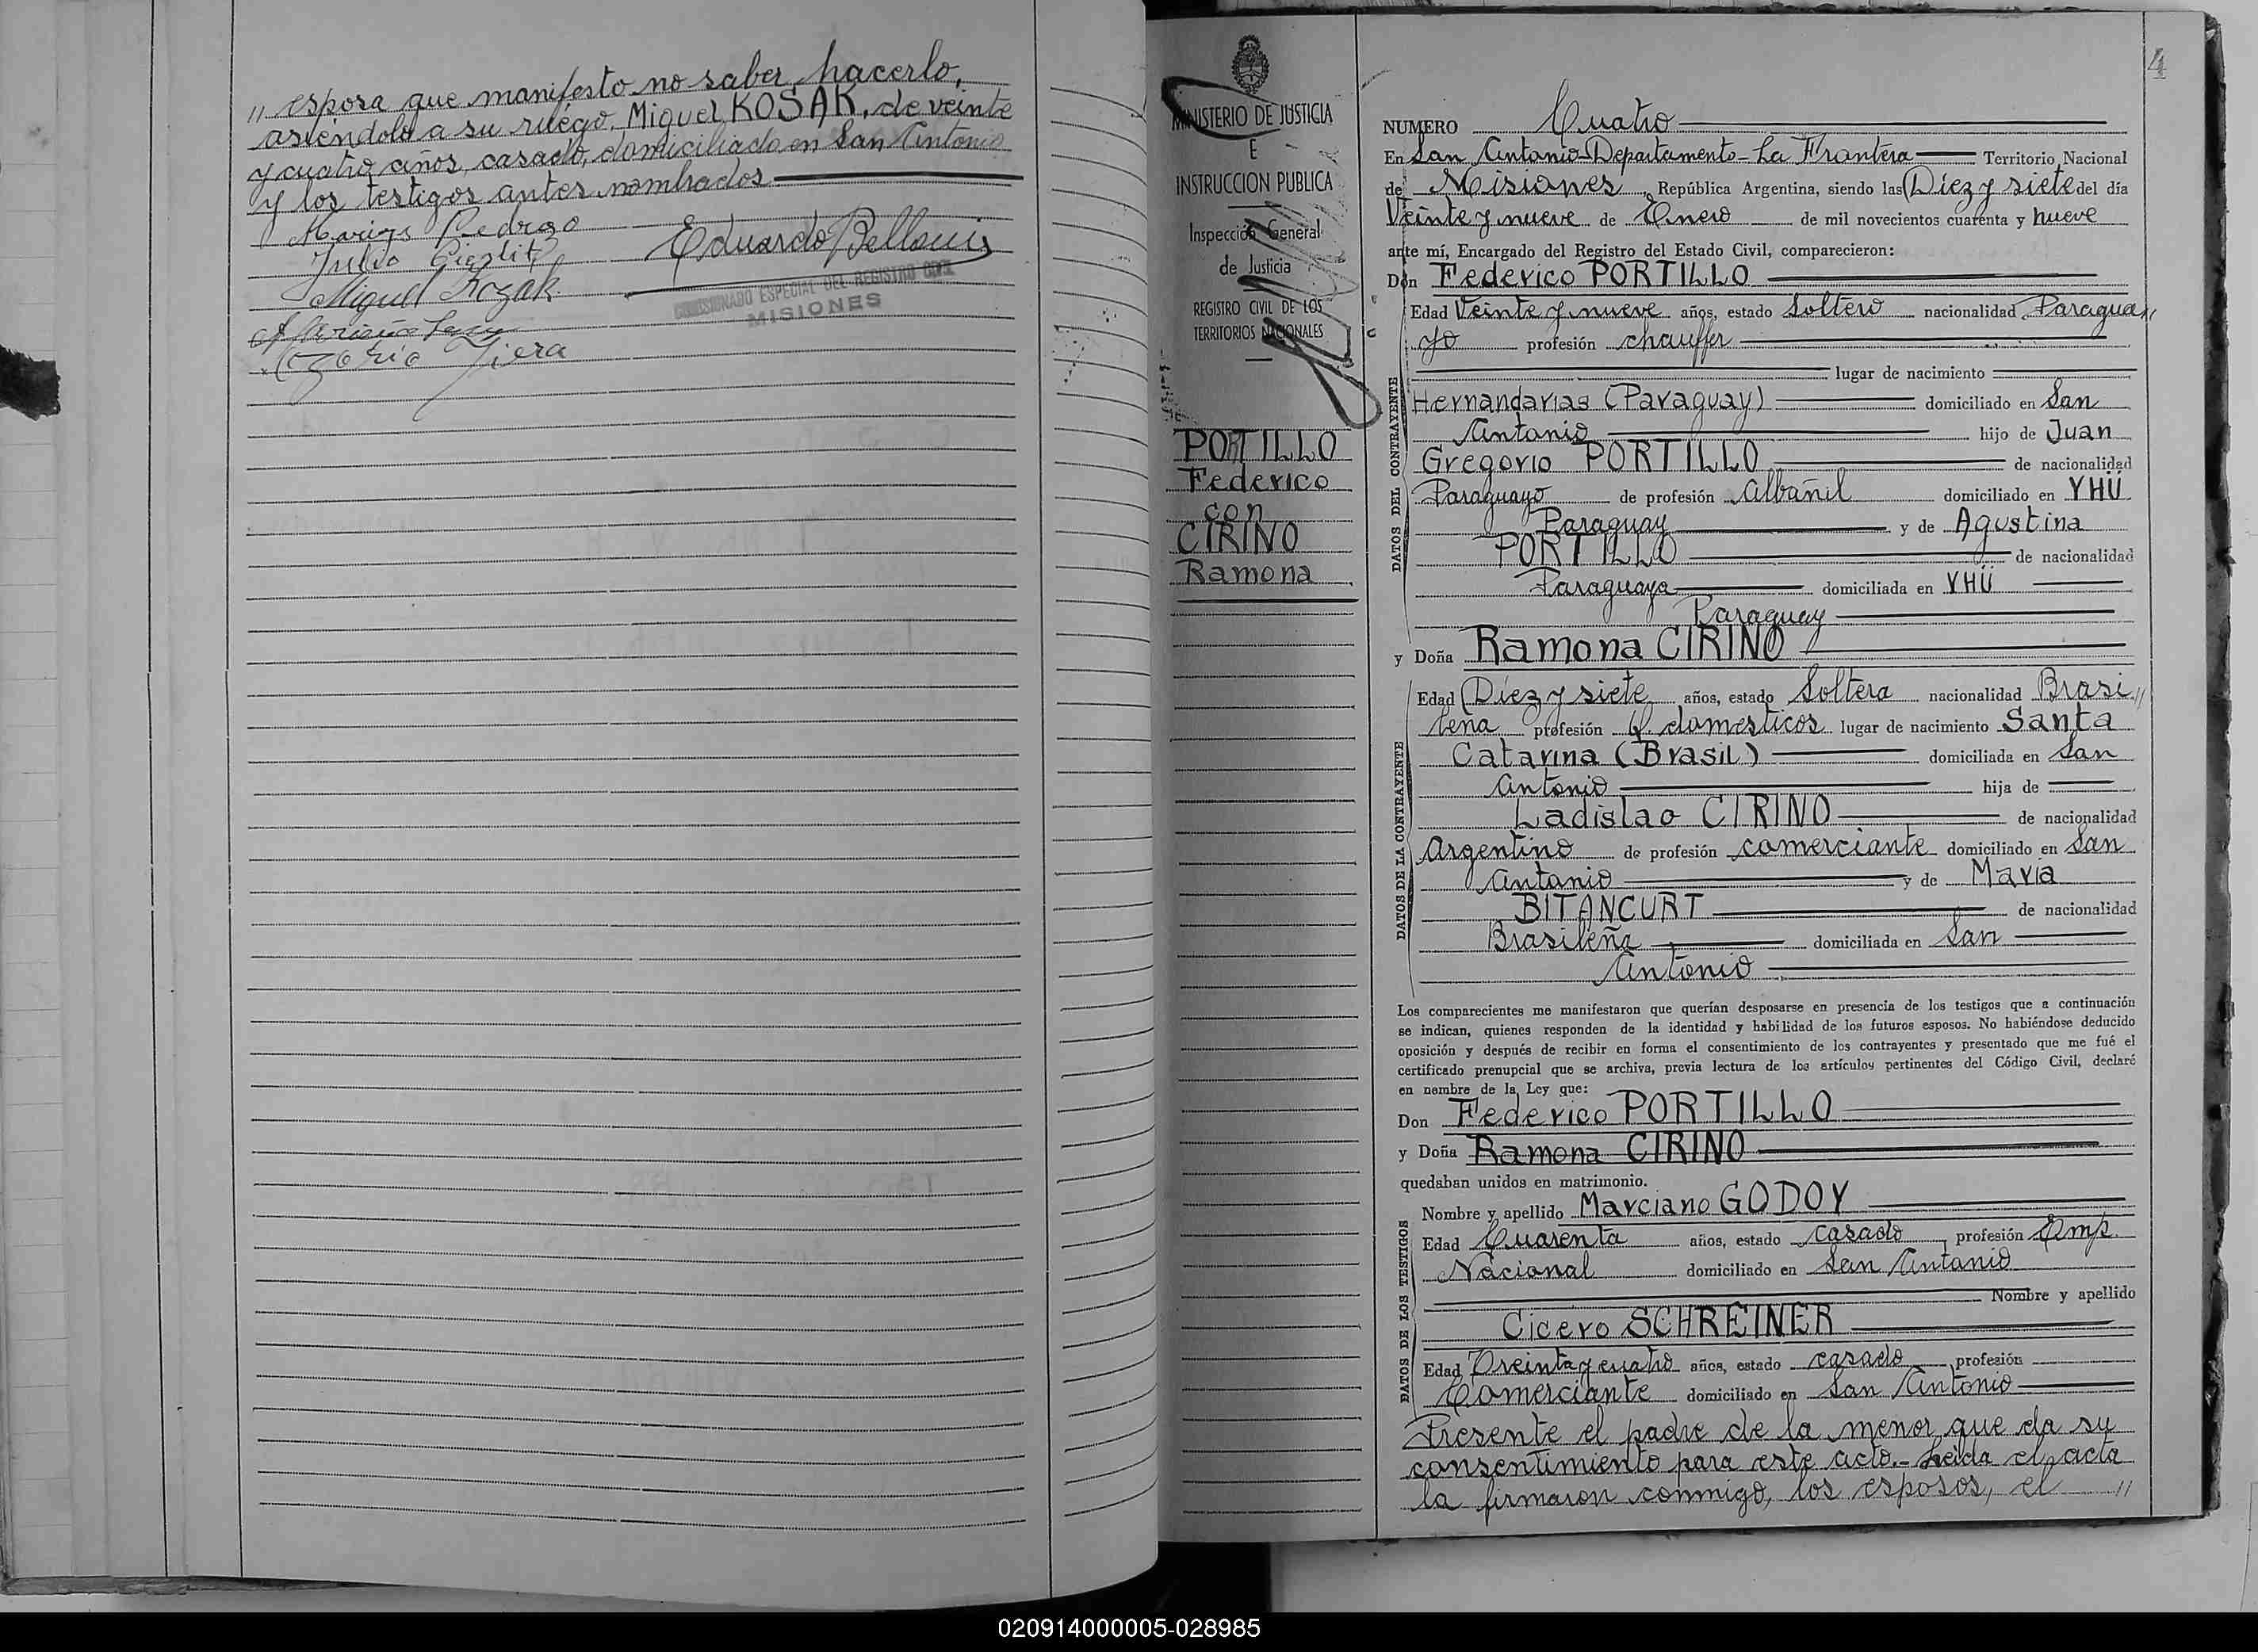 // esposa que manifesto no saber hacerlo,
asiendolo a su ruego, Miguel KOSAK, de veinte
y cuatro años, casado, domiciliado en San Antonio
y los testigos antes nombrados
Pedrozo
Julio
Miguel Kozak
Eduardo Bellouis
COMISIONADO ESPECIAL DEL REGISTRO CIVIL
MISIONES
4
MINISTERIO DE JUSTICIA
E
INSTRUCCION PUBLICA
Inspección General
de Justicia
REGISTRO CIVIL DE LOS
TERRITORIOS NACIONALES
PORTILLO
Federico
con
CIRINO
Ramona
NUMERO Cuatro
En San Antonio-Departamento-La Frontera Territorio Nacional
de Misiones República Argentina, siendo las Diez y siete del día
Veinte y nueve de Enero de mil novecientos cuarenta y nueve
ante mí, Encargado del Registro del Estado Civil, comparecieron:
Don Federico PORTILLO
DATOS DEL CONTRAYENTE
Edad Veinte y nueve años, estado Soltero nacionalidad Paragua//
yo profesión chauffer
lugar de nacimiento
Hernandarias (Paraguay) domiciliado en San
Antonio hijo de Juan
Gregorio PORTILLO de nacionalidad
Paraguayo de profesión Albañil domiciliado en YHÚ
Paraguay y de Agustina
PORTILLO de nacionalidad
Paraguaya domiciliada en YHÚ
Paraguay
y Doña Ramona CIRINO
DATOS DE LA CONTRAYENTE
Edad Diez y siete años, estado Soltera nacionalidad Brasi//
leña profesión Q. domesticos lugar de nacimiento Santa
Catarina (Brasil) domiciliada en San
Antonio hija de
Ladislao CIRINO de nacionalidad
Argentino de profesión comerciante domiciliado en San
Antonio y de Maria
BITANCURT de nacionalidad
Brasileña domiciliada en San
Antonio
Los comparecientes me manifestaron que querían desposarse en presencia de los testigos que a continuación
se indican, quienes responden de la identidad y habilidad de los futuros esposos. No habiéndose deducido
oposición y después de recibir en forma el consentimiento de los contrayentes y presentado que me fué el
certificado prenupcial que se archiva, previa lectura de los artículos pertinentes del Código Civil, declaré
en nombre de la Ley que:
Don Federico PORTILLO
y Doña Ramona CIRINO
quedaban unidos en matrimonio.
DATOS DE LOS TESTIGOS
Nombre y apellido Marciano GODOY
Edad Cuarenta años, estado casado profesión Emp.
Nacional domiciliado en San Antonio
Nombre y apellido
Cicero SCHREINER
Edad Treinta y cuatro años, estado casado profesión
Comerciante domiciliado en San Antonio
Presente el padre de la menor que da su
consentimiento para este acto.- Leida el acta
la firmaron conmigo, los esposos, el //
020914000005-028985